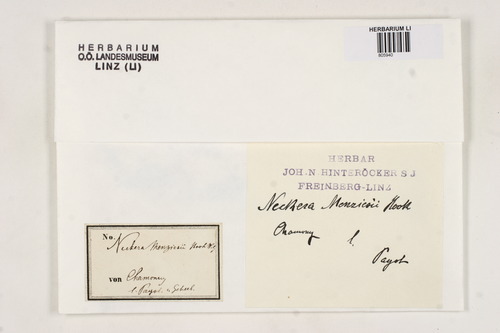 HERBARIUM
O.Ö. LANDESMUSEUM
LINZ (LI)
HERBARIUM LI
805940
HERBAR
JOH. N. HINTERÖCKER S J
FREINBERG-LINZ
Neckera Menziesii Hook
Chamony
l. Payot
No.
Neckera Menziesii Hook
von Chamony
l. Payot